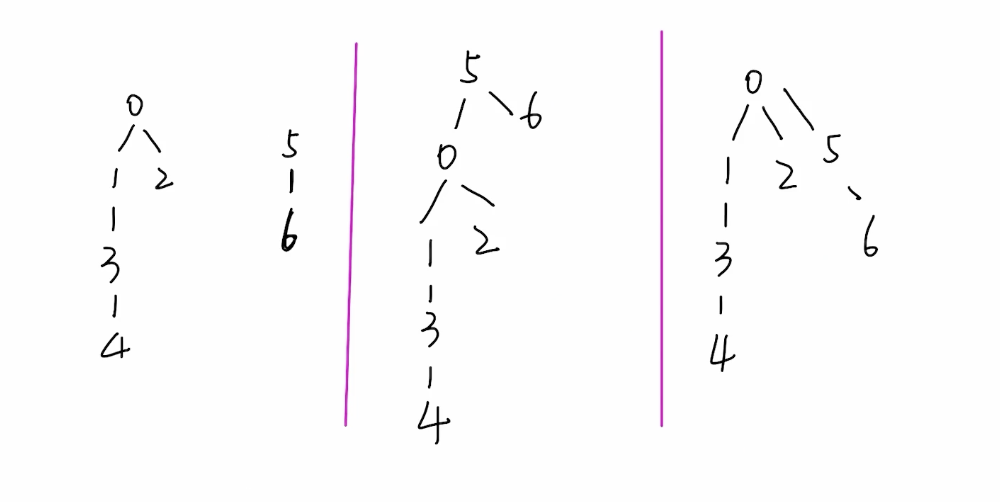 0
1 2
3
4
5
6
5
6
0
1 2
3
4
0
1 2 5
3 6
4